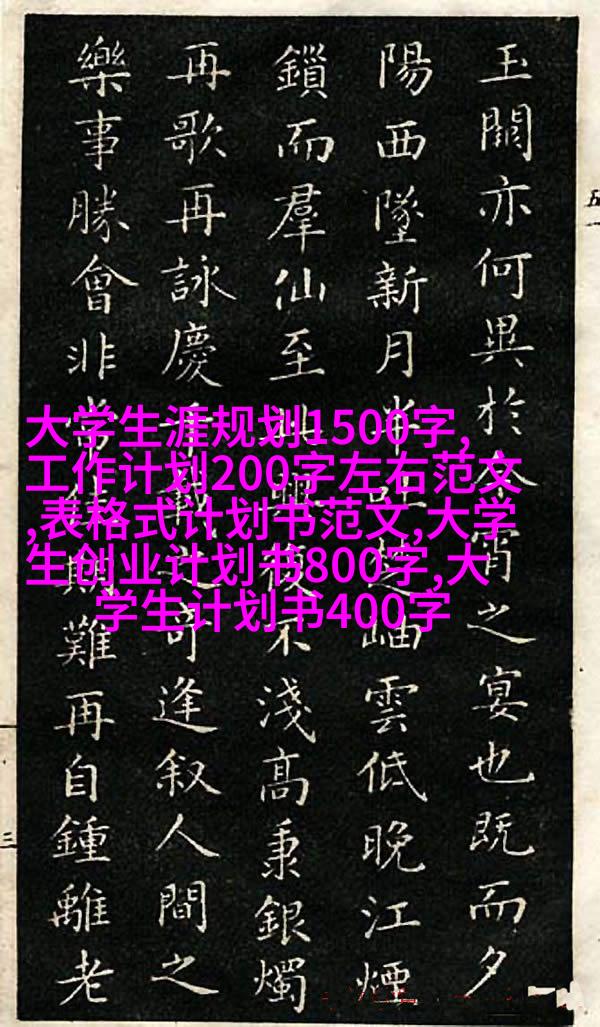 玉關亦何異於今宵之宴也既而夕
陽西墜新月半吐楚岫雲低晚江煙
鎖而羣仙至此興復不淺高秉銀燭
再歌再詠慶千載之奇逢叙人間之
樂事勝會非常佳期難再自鍾離老
大学生涯规划1500字,
工作计划200字左右范文
,表格式计划书范文,大学
生创业计划书800字,大
学生计划书400字
五一
三